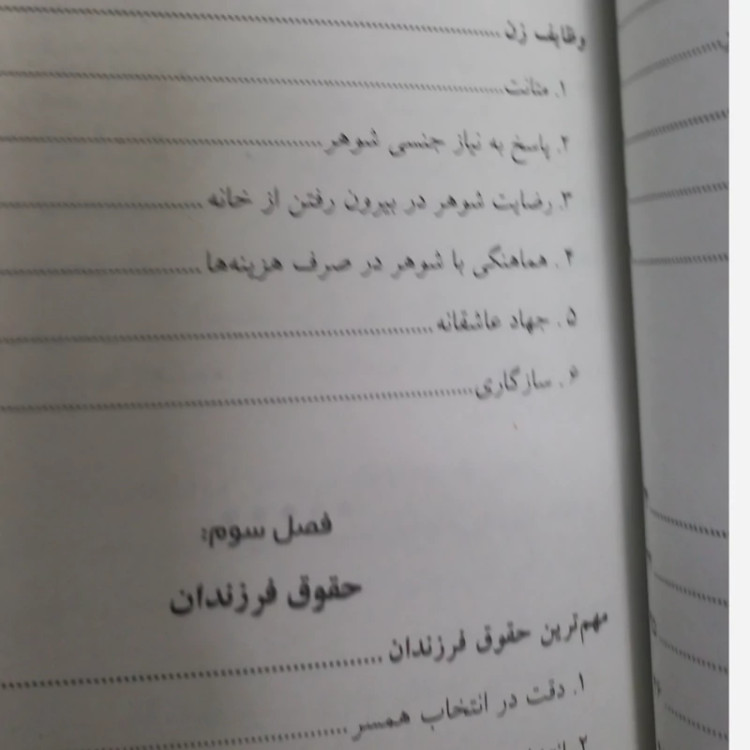 وظایف زن
۱. متانت
۲. پاسخ به نیاز جنسی شوهر
۳. رضایت شوهر در بیرون رفتن از خانه
۴. هماهنگی با شوهر در صرف هزینه‌ها
۵. جهاد عاشقانه
۶. سازگاری
فصل سوم:
حقوق فرزندان
مهم‌ترین حقوق فرزندان
۱. دقت در انتخاب همسر
۲.